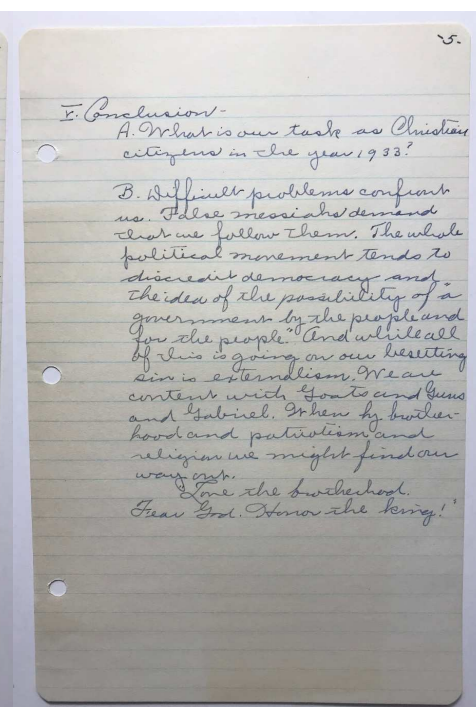 -5-
V. Conclusion-
A. What is our task as Christian
citizens in the year 1933?
B. Difficult problems confront
us. False messiahs demand
that we follow them. The whole
political movement tends to
discredit democracy and
the idea of the possibility of "a
government by the people and
for the people." And while all
of this is going on our besetting
sin is externalism. We are
content with Goats and Guns
and Gabriel. When by brother-
hood and patriotism and
religion we might find our
way out.
"Love the brotherhood.
Fear God. Honor the king!"